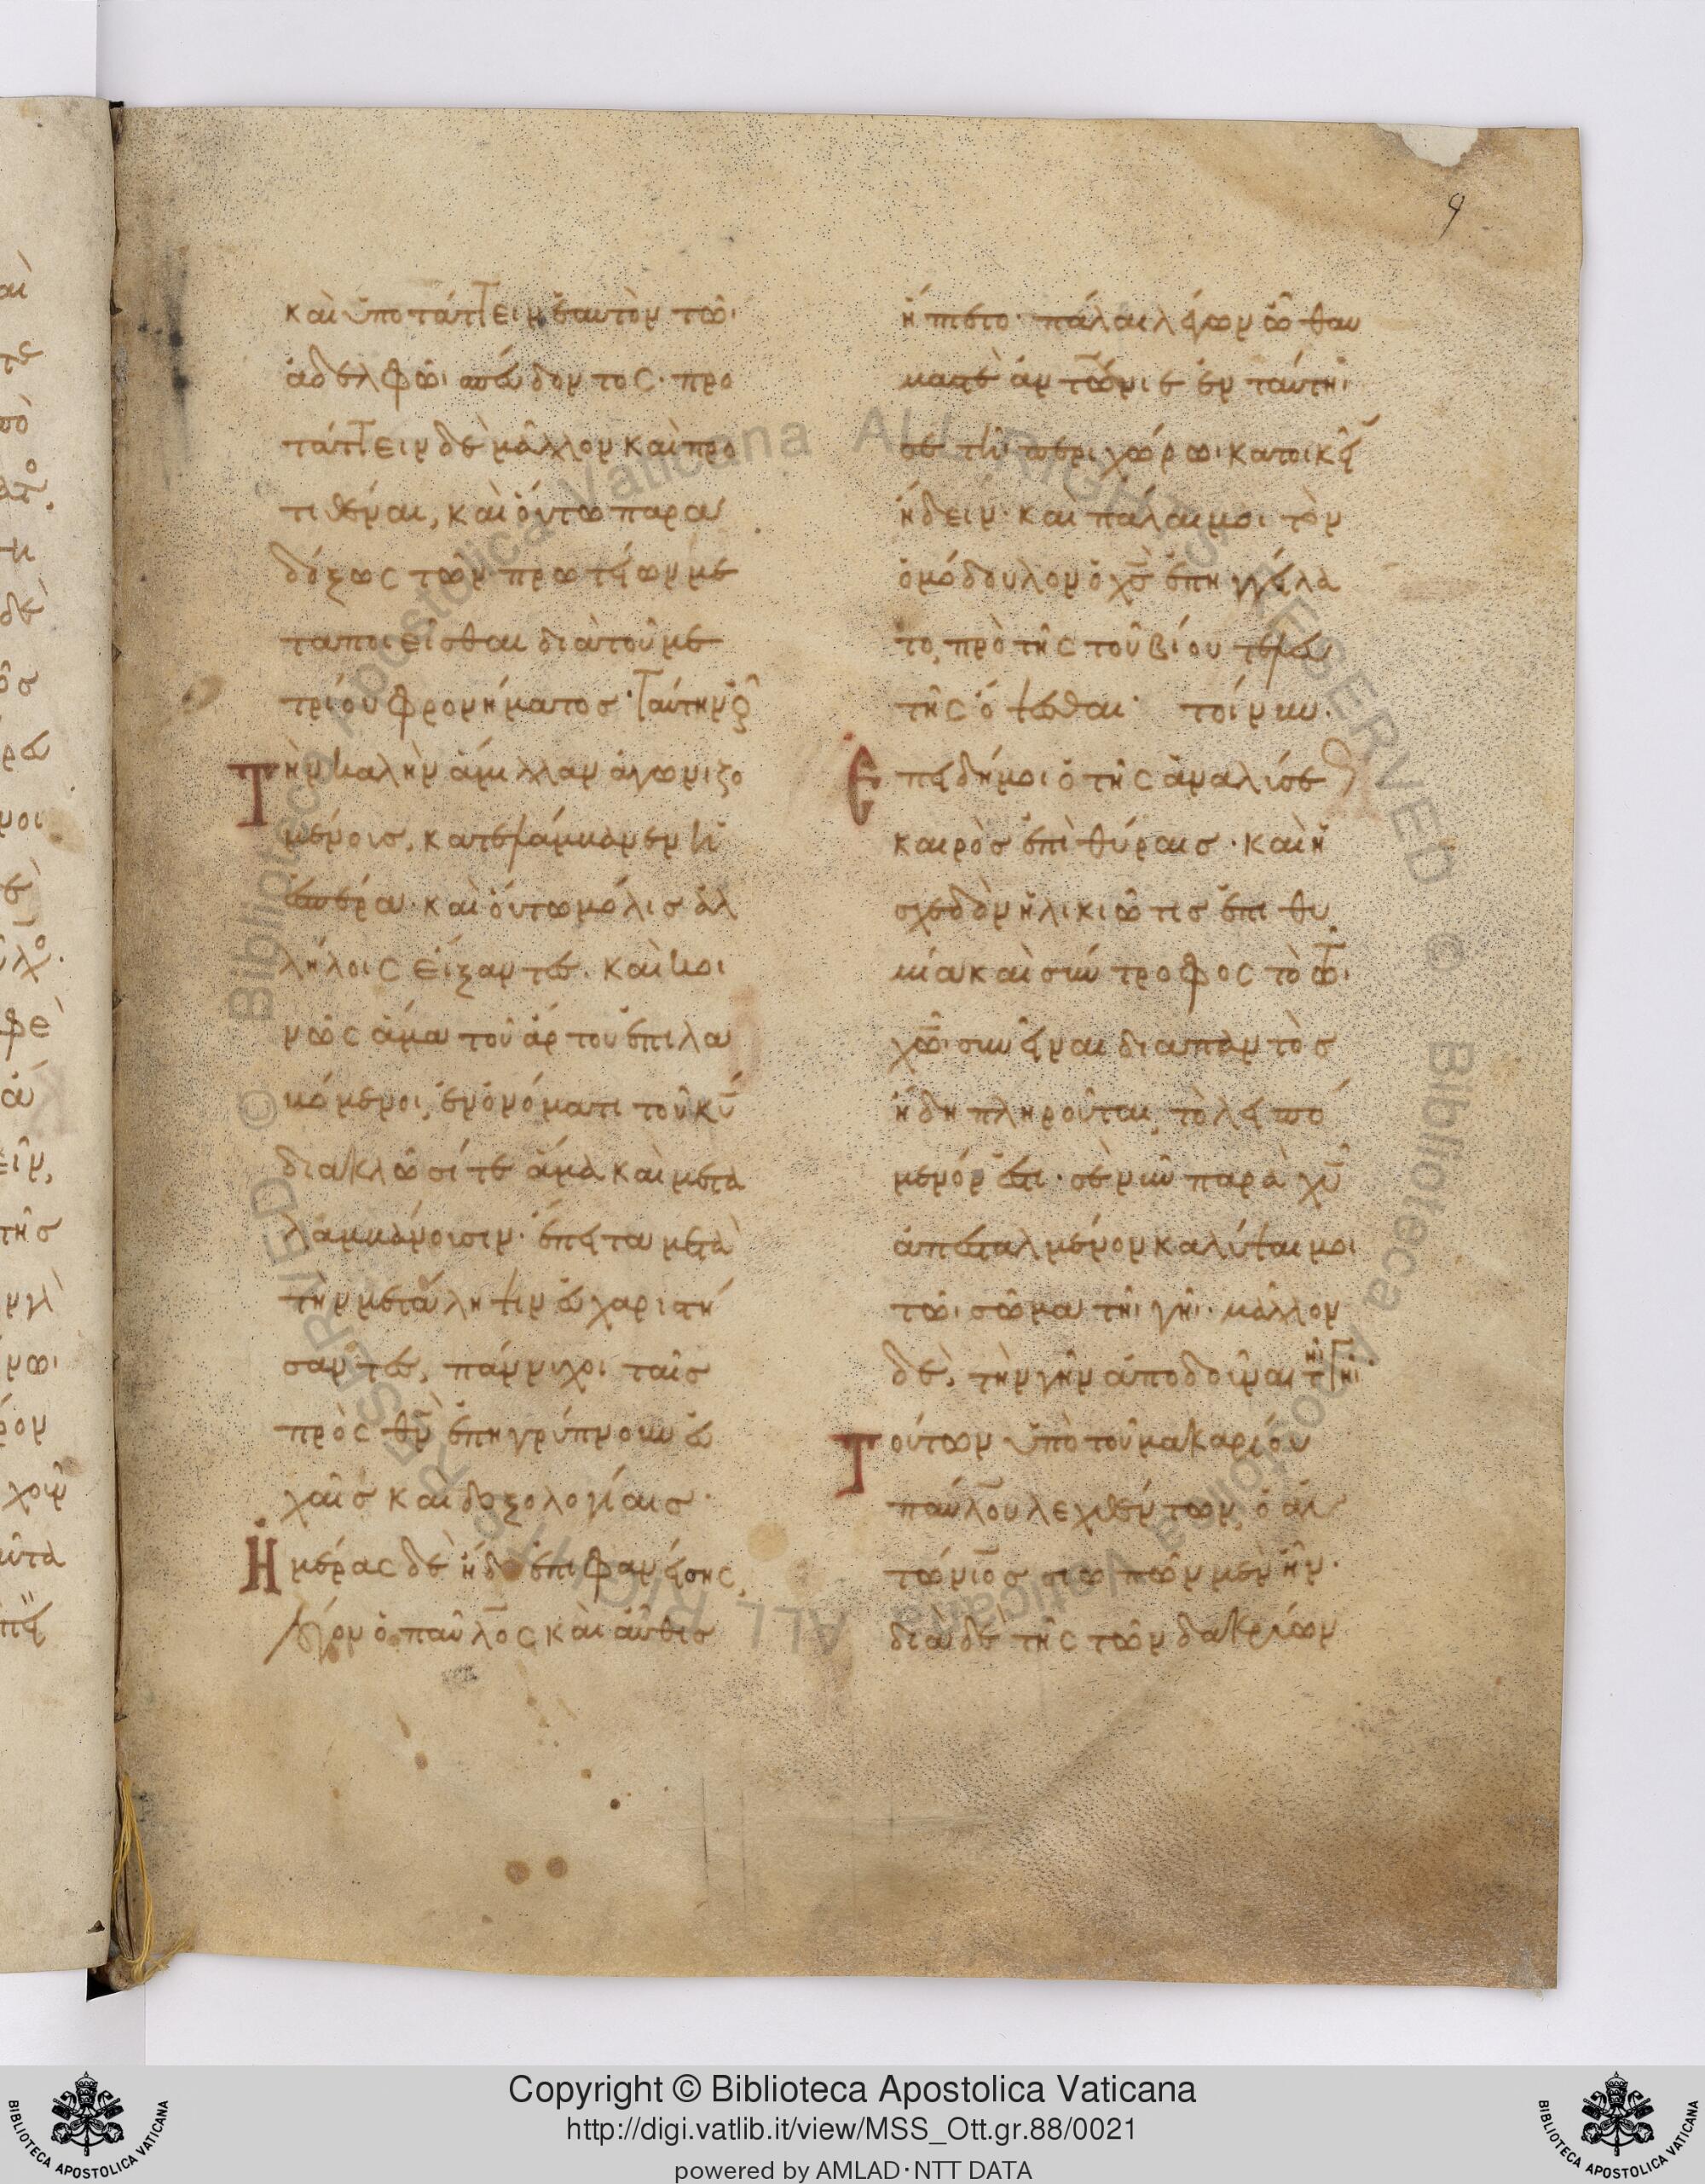 9
καὶ ὑποτάττειν ἑαυτὸν τῶι
ἀδελφῶι σπεύδοντος· προ
τάττειν δὲ μᾶλλον καὶ προ
τιθέναι, καὶ οὕτω παρα
δόξως τῶν πρωτείων με
ταποιεῖσθαι διὰ τοῦ με
τρίου φρονήματος· Ταύτην
τὴν καλὴν ἅμιλλαν ἀγωνιζο
μένοις, κατελάμβανεν ἡ
ἑσπέρα· καὶ οὕτω μόλις ἀλ
λήλοις εἰξάντων. καὶ κοι
νῶς ἅμα τοῦ ἄρτου ἐπιλα
βόμενοι, ἐν ὀνόματι τοῦ κυ
διακλῶσί τε ἅμα καὶ μετα
λαμβάνουσιν· ἔπειτα μετὰ
τὴν μετάληψιν εὐχαριστή
σαντες, πάννυχοι ταῖς
πρὸς θν ἐπηγρύπνουν εὐ
χαῖς καὶ δοξολογίαις·
Ἡμέρας δὲ ἤδη ἐπιφανείσης,
λέγον ὁ παῦλος καὶ αὖθις
ἤπιστο· πάλαι λέγων ὦ θαυ
μαστὲ ἀντώνιε ἐν ταύτηι
σε τῆι περιχώρωι κατοικεῖν
ἤδειν· καὶ πάλαι μοι τὸν
ὁμόδουλον ὁ χς ἐπηγγείλα
το, πρὸ τῆς τοῦ βίου τελευ
τῆς ὄψεσθαι· τοίνυν.
Ἐπειδή μοι ὁ τῆς ἀναλύσεως
καιρὸς ἐπὶ θύραις· καὶ ἡ
σχεδὸν ἡλικιῶτις ἐπιθυ
μία καὶ σύντροφος τὸ τῶι
χῶι συνεῖναι διαπαντὸς
ἤδη πληροῦται, τὸ λειπό
μενόν ἐστι· σὲ νῦν παρὰ χυ
ἀπεσταλμένον καλύψαι μοι
τῶι σῶμα τῆι γῆι· μᾶλλον
δὲ, τὴν γῆν ἀποδοῦναι τῆι γῆι·
Τούτων ὑπὸ τοῦ μακαρίου
παύλου λεχθέντων, ὁ ἀν
τώνιος σιωπῶν μὲν ἦν·
διὰ δὲ τῆς τῶν δακρύων
Copyright © Biblioteca Apostolica Vaticana
http://digi.vatlib.it/view/MSS_Ott.gr.88/0021
powered by AMLAD·NTT DATA
BIBLIOTECA APOSTOLICA VATICANA
BIBLIOTECA APOSTOLICA VATICANA